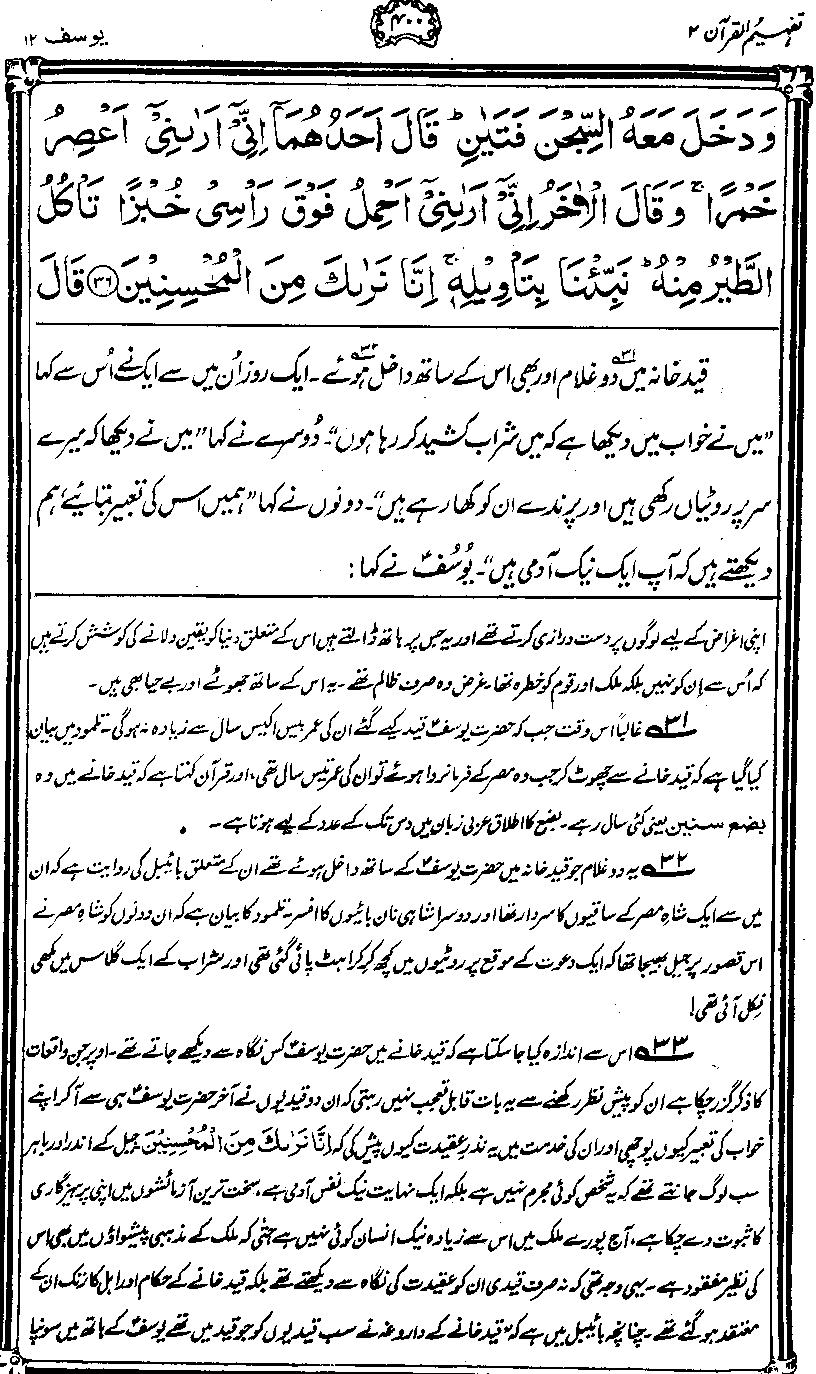 تفہیم القرآن ۲
۴۰۰
یوسف ۱۲
وَدَخَلَ مَعَهُ السِّجْنَ فَتَيٰنِ ؕ قَالَ اَحَدُهُمَاۤ اِنِّیْۤ اَرٰىنِیْۤ اَعْصِرُ
خَمْرًا ۚ وَقَالَ الْاٰخَرُ اِنِّیْۤ اَرٰىنِیْۤ اَحْمِلُ فَوْقَ رَاْسِیْ خُبْزًا تَاْكُلُ
الطَّيْرُ مِنْهُ ؕ نَبِّئْنَا بِتَاْوِيْلِهٖ ۚ اِنَّا نَرٰىكَ مِنَ الْمُحْسِنِيْنَ ﴿۳۶﴾ قَالَ
قید خانہ میں۳۱ دو غلام اور بھی اس کے ساتھ داخل ہوئے۳۲۔ ایک روز اُن میں سے ایک نے اُس سے کہا
”میں نے خواب میں دیکھا ہے کہ میں شراب کشید کر رہا ہوں“۔ دُوسرے نے کہا ”میں نے دیکھا کہ میرے
سر پر روٹیاں رکھی ہیں اور پرندے ان کو کھا رہے ہیں“۔ دونوں نے کہا ”ہمیں اس کی تعبیر بتائیے، ہم
دیکھتے ہیں کہ آپ ایک نیک آدمی ہیں“۔ یُوسُفؑ نے کہا:
اپنی اغراض کے لیے لوگوں پر دست درازی کرتے تھے اور یہ جس پر ہاتھ ڈالتے ہیں اس کے متعلق دنیا کو یقین دلانے کی کوشش کرتے ہیں
کہ اُس سے اِن کو نہیں بلکہ ملک اور قوم کو خطرہ تھا۔ غرض وہ صرف ظالم تھے۔ یہ اس کے ساتھ جھوٹے اور بے حیا بھی ہیں۔
۳۱ غالباً اس وقت جب کہ حضرت یوسفؑ قید کیے گئے ان کی عمر بیس اکیس سال سے زیادہ نہ ہوگی۔ تلمود میں بیان
کیا گیا ہے کہ قید خانے سے چھوٹ کر جب وہ مصر کے فرمانروا ہوئے تو ان کی عمر تیس سال تھی، اور قرآن کہتا ہے کہ قید خانے میں وہ
بضع سنین یعنی کئی سال رہے۔ بضع کا اطلاق عربی زبان میں دس تک کے عدد کے لیے ہوتا ہے۔
۳۲ یہ دو غلام جو قید خانہ میں حضرت یوسفؑ کے ساتھ داخل ہوئے تھے ان کے متعلق بائیبل کی روایت ہے کہ ان
میں سے ایک شاہِ مصر کے ساقیوں کا سردار تھا اور دوسرا شاہی نان بائیوں کا افسر۔ تلمود کا بیان ہے کہ ان دونوں کو شاہِ مصر نے
اس قصور پر جیل بھیجا تھا کہ ایک دعوت کے موقع پر روٹیوں میں کچھ کرکراہٹ پائی گئی تھی اور شراب کے ایک گلاس میں مکھی
نکل آئی تھی!
۳۳ اس سے اندازہ کیا جا سکتا ہے کہ قید خانے میں حضرت یوسفؑ کس نگاہ سے دیکھے جاتے تھے۔ اوپر جن واقعات
کا ذکر گزر چکا ہے ان کو پیش نظر رکھنے سے یہ بات قابل تعجب نہیں رہتی کہ ان دو قیدیوں نے آخر حضرت یوسفؑ ہی سے آ کر اپنے
خواب کی تعبیر کیوں پوچھی اور ان کی خدمت میں یہ نذرِ عقیدت کیوں پیش کی کہ اِنَّا نَرٰىكَ مِنَ الْمُحْسِنِيْنَ۔ جیل کے اندر اور باہر
سب لوگ جانتے تھے کہ یہ شخص کوئی مجرم نہیں ہے بلکہ ایک نہایت نیک نفس آدمی ہے، سخت ترین آزمائشوں میں اپنی پرہیزگاری
کا ثبوت دے چکا ہے، آج پورے ملک میں اس سے زیادہ نیک انسان کوئی نہیں ہے حتیٰ کہ ملک کے مذہبی پیشواؤں میں بھی اس
کی نظیر مفقود ہے۔ یہی وجہ تھی کہ نہ صرف قیدی ان کو عقیدت کی نگاہ سے دیکھتے تھے بلکہ قید خانے کے حکام اور اہل کار تک ان کے
معتقد ہو گئے تھے۔ چنانچہ بائیبل میں ہے کہ ”قید خانے کے داروغہ نے سب قیدیوں کو جو قید میں تھے یوسفؑ کے ہاتھ میں سونپا